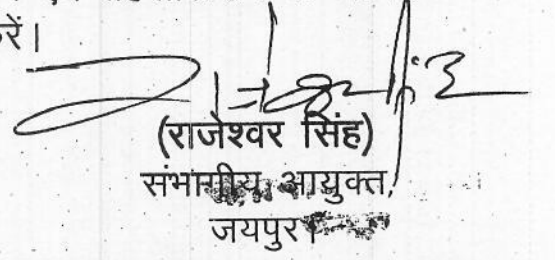 रें।
(राजेश्वर सिंह)
संभागीय आयुक्त,
जयपुर।